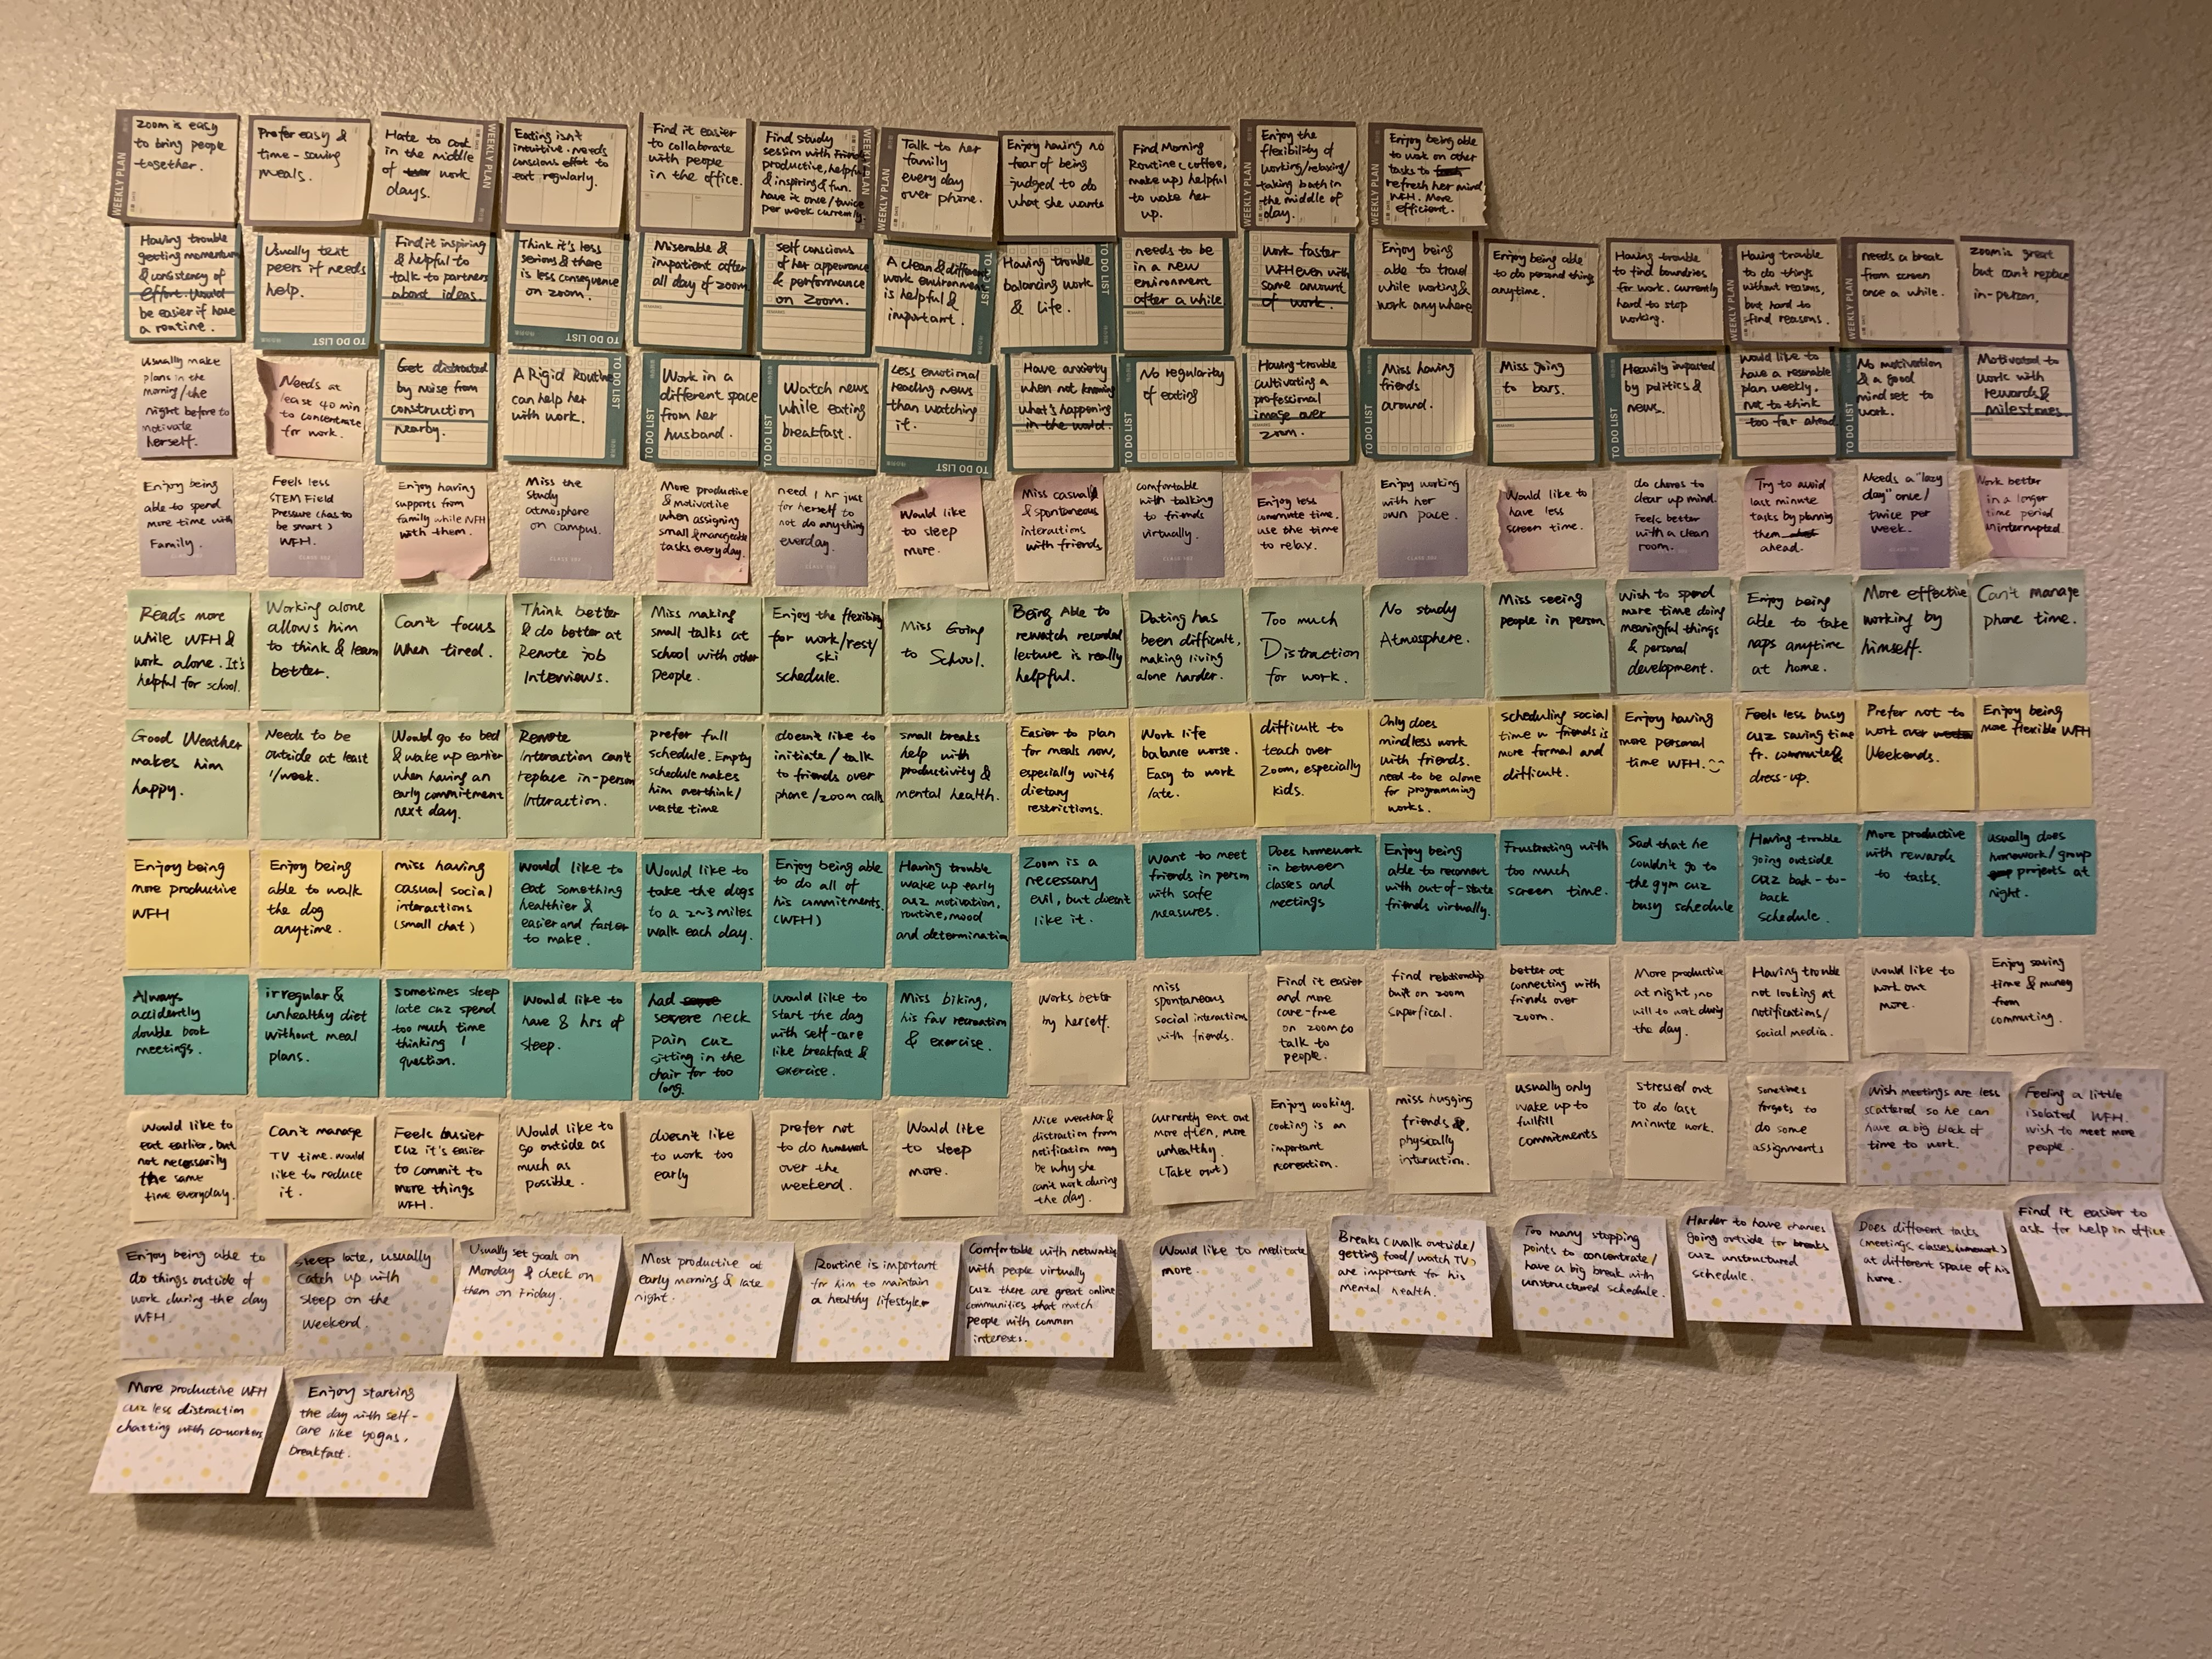 Zoom is easy
to bring people
together.
Prefer easy &
time-saving
meals.
Hate to cook
in the middle
of work
days.
Eating isn't
intuitive. needs
conscious effort to
eat regularly.
Find it easier
to collaborate
with people
in the office.
Find study
session with
productive, helpful
& inspiring & fun.
have it once/twice
per week currently.
Talk to her
family
every day
over phone.
Enjoy having no
fear of being
judged to do
what she wants
Find Morning
Routine (coffee,
make up) helpful
to wake her
up.
Enjoy the
flexibility of
working/relaxing/
taking bath in
the middle of
day.
Enjoy being able
to work on other
tasks to
refresh her mind
WFH. More
efficient.
WEEKLY PLAN
WEEKLY PLAN
WEEKLY PLAN
WEEKLY PLAN
WEEKLY PLAN
WEEKLY PLAN
Having trouble
getting momentum
& consistency of
effort. Would
be easier if have
a routine.
Usually text
peers if needs
help.
Find it inspiring
& helpful to
talk to partners
about ideas.
Think it's less
serious & there
is less consequence
on zoom.
Miserable &
impatient after
all day of zoom
self conscious
of her appearance
& performance
on Zoom.
A clean & different
work environment
is helpful &
important.
Having trouble
balancing work
& life.
needs to be
in a new
environment
after a while
Work faster
WFH even with
same amount
of work.
Enjoy being
able to travel
while working &
work anywhere
Enjoy being able
to do personal things
anytime.
Having trouble
to find boundries
for work. currently
hard to stop
working.
Having trouble
to do things
without reasons,
but hard to
find reasons.
needs a break
from screen
once a while.
zoom is great
but can't replace
in-person.
TO DO LIST
TO DO LIST
TO DO LIST
TO DO LIST
WEEKLY PLAN
WEEKLY PLAN
Usually make
plans in the
morning/the
night before to
motivate
herself.
Needs at
least 40 min
to concentrate
for work.
Get distracted
by noise from
construction
nearby.
A Rigid Routine
can help her
with work.
Work in a
different space
from her
husband.
Watch news
while eating
breakfast.
Less emotional
reading news
than watching
it.
Have anxiety
when not knowing
what's happening
in the world.
No regularity
of eating
Having trouble
cultivating a
professional
image over
zoom.
Miss having
friends
around.
Miss going
to bars.
Heavily impacted
by politics &
news.
Would like to
have a resonable
plan weekly.
not to think
too far ahead
No motivation
& a good
mindset to
work.
Motivated to
work with
rewards &
milestones.
TO DO LIST
TO DO LIST
TO DO LIST
TO DO LIST
TO DO LIST
TO DO LIST
TO DO LIST
Enjoy being
able to spend
more time with
Family.
Feels less
STEM Field
Pressure (has to
be smart)
WFH.
Enjoy having
supports from
family while WFH
with them.
Miss the
study
atmosphere
on campus.
More productive
& motivative
when assigning
small & manageable
tasks everyday.
need 1 hr just
for herself to
not do anything
everday.
Would like
to sleep
more.
Miss casual
& spontaneous
interactions
with friends
comfortable
with talking
to friends
virtually.
Enjoy less
commute time.
use the time
to relax.
Enjoy working
with her
own pace.
Would like to
have less
screen time.
do chores to
clear up mind.
Feels better
with a clean
room.
Try to avoid
last minute
tasks by planning
them
ahead.
Needs a "lazy
day" once/
twice per
week.
Work better
in a longer
time period
uninterrupted.
Reads more
while WFH &
work alone. It's
helpful for school.
Working alone
allows him
to think & learn
better.
Can't focus
when tired.
Think better
& do better at
Remote job
Interviews.
Miss making
small talks at
school with other
People.
Enjoy the flexibility
for work/rest/
ski
schedule.
Miss Going
to School.
Being Able to
rewatch recorded
lecture is really
helpful.
Dating has
been difficult,
making living
alone harder.
Too much
Distraction
for work.
No study
Atmosphere.
Miss seeing
people in person
Wish to spend
more time doing
meaningful things
& personal
development.
Enjoy being
able to take
naps anytime
at home.
More effective
working by
himself.
Can't manage
phone time.
Good Weather
makes him
happy.
Needs to be
outside at least
1/week.
Would go to bed
& wake up earlier
when having an
early commitment
next day.
Remote
Interaction can't
replace in-person
Interaction.
prefer full
schedule. Empty
schedule makes
him overthink/
waste time
doesn't like to
initiate / talk
to friends over
phone/zoom calls
small breaks
help with
productivity &
mental health.
Easier to plan
for meals now,
especially with
dietary
restrictions.
Work life
balance worse.
Easy to work
late.
difficult to
teach over
Zoom, especially
kids.
Only does
mindless work
with friends.
need to be alone
for programming
works.
scheduling social
time w friends is
more formal and
difficult.
Enjoy having
more personal
time WFH.
Feels less busy
cuz saving time
fr. commute &
dress-up.
Prefer not to
work over
Weekends.
Enjoy being
more flexible WFH
Enjoy being
more productive
WFH
Enjoy being
able to walk
the dog
anytime.
miss having
casual social
interactions
(small chat)
would like to
eat something
healthier &
easier and faster
to make.
Would like to
take the dogs
to a 2~3 miles
walk each day.
Enjoy being able
to do all of
his commitments.
(WFH)
Having trouble
wake up early
cuz motivation,
routine, mood
and determination
Zoom is a
necessary
evil, but doesn't
like it.
Want to meet
friends in person
with safe
measures.
Does homework
in between
classes and
meetings
Enjoy being
able to reconnect
with out-of-state
friends virtually.
Frustrating with
too much
screen time.
Sad that he
couldn't go to
the gym cuz
busy schedule
Having trouble
going outside
cuz back-to-
back
schedule.
More productive
with rewards
to tasks.
usually does
homework/group
projects at
night.
Always
accidently
double book
meetings.
irregular &
unhealthy diet
without meal
plans.
sometimes sleep
late cuz spend
too much time
thinking 1
question.
Would like to
have 8 hrs of
sleep.
had
severe neck
pain cuz
sitting in the
chair for too
long.
would like to
start the day
with self-care
like breakfast &
exercise.
Miss biking,
his fav recreation
& exercise.
Works better
by herself.
miss
spontaneous
social interaction
with friends.
Find it easier
and more
care-free
on zoom to
talk to
people.
find relationship
built on zoom
superfical.
better at
connecting with
friends over
zoom.
More productive
at night, no
will to work during
the day.
Having trouble
not looking at
notifications/
social media.
would like to
work out
more.
Enjoy saving
time & money
from
commuting.
Would like to
eat earlier, but
not necessarily
the same
time everyday.
Can't manage
TV time. would
like to reduce
it.
Feels busier
cuz it's easier
to commit to
more things
WFH.
Would like to
go outside as
much as
possible.
doesn't like
to work too
early
prefer not
to do homework
over the
weekend.
Would like
to sleep
more.
Nice weather &
distraction from
notification may
be why she
can't work during
the day.
Currently eat out
more often, more
unhealthy.
(Take out)
Enjoy cooking.
cooking is an
important
recreation.
miss hugging
friends &
physically
interaction.
usually only
wake up to
fullfill
commitments
stressed out
to do last
minute work.
sometimes
forgets to
do some
assignments
Wish meetings are less
scattered so he can
have a big block of
time to work.
Feeling a little
isolated WFH.
wish to meet more
people.
Enjoy being able to
do things outside of
work during the day
WFH.
sleep late, usually
catch up with
sleep on the
weekend.
Usually set goals on
Monday & check on
them on Friday.
Most productive at
early morning & late
night.
Routine is important
for him to maintain
a healthy lifestyle.
Comfortable with networking
with people virtually
cuz there are great online
communities that match
people with common
interests.
Would like to meditate
more.
Breaks (walk outside/
getting food/watch TV)
are important for his
mental health.
Too many stopping
points to concentrate/
have a big break with
unstructured schedule.
Harder to have chances
going outside for breaks
cuz unstructured
schedule.
Does different tasks
(meetings, classes, homework)
at different space of his
home.
Find it easier to
ask for help in office.
More productive WFH
cuz less distraction
chatting with coworkers
Enjoy starting
the day with self-
care like yogas,
breakfast.